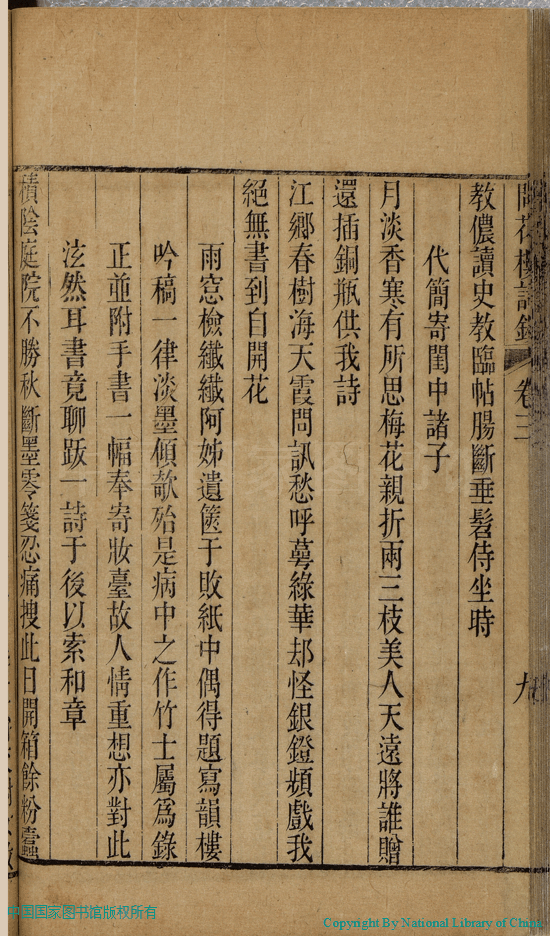 花樓詩鈔 卷三 九
教儂讀史教臨帖腸斷垂髫侍坐時
代簡寄閨中諸子
月淡香寒有所思梅花親折兩三枝美人天遠將誰贈
還插銅瓶供我詩
江鄉春樹海天霞問訊愁呼萼綠華却怪銀鐙頻戲我
絕無書到自開花
雨窓檢纖纖阿姊遺篋于敗紙中偶得題寫韻樓
吟稿一律淡墨傾欹殆是病中之作竹士屬爲錄
正並附手書一幅奉寄妝臺故人情重想亦對此
泫然耳書竟聊跋一詩于後以索和章
積陰庭院不勝秋斷墨零箋忍痛搜此日開箱餘粉蠹
中国国家图书馆版权所有
Copyright By National Library of China